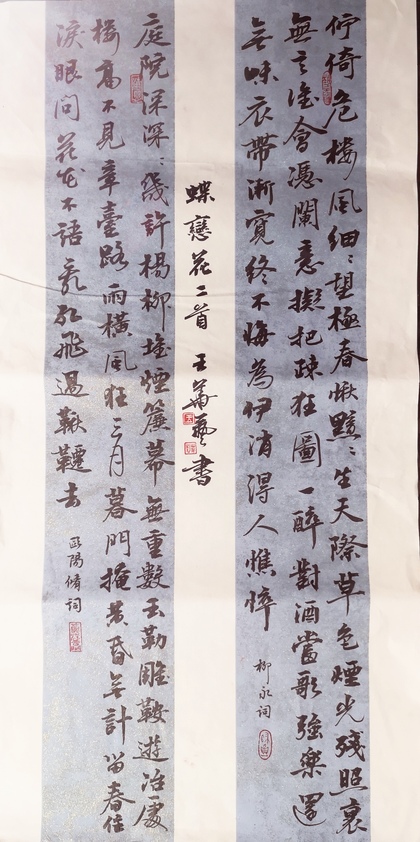 佇倚危樓風細〻望極春愁黯〻生天際草色煙光殘照裏
無言誰會憑闌意擬把疎狂圖一醉對酒當歌強樂還
無味衣帶漸寬終不悔為伊消得人憔悴
柳永詞
蝶戀花二首 王華藝書
庭院深深〻幾許楊柳堆煙簾幕無重數玉勒雕鞍遊冶處
樓高不見章臺路雨橫風狂三月暮門掩黃昏無計留春住
淚眼問花花不語亂紅飛過鞦韆去
歐陽脩詞